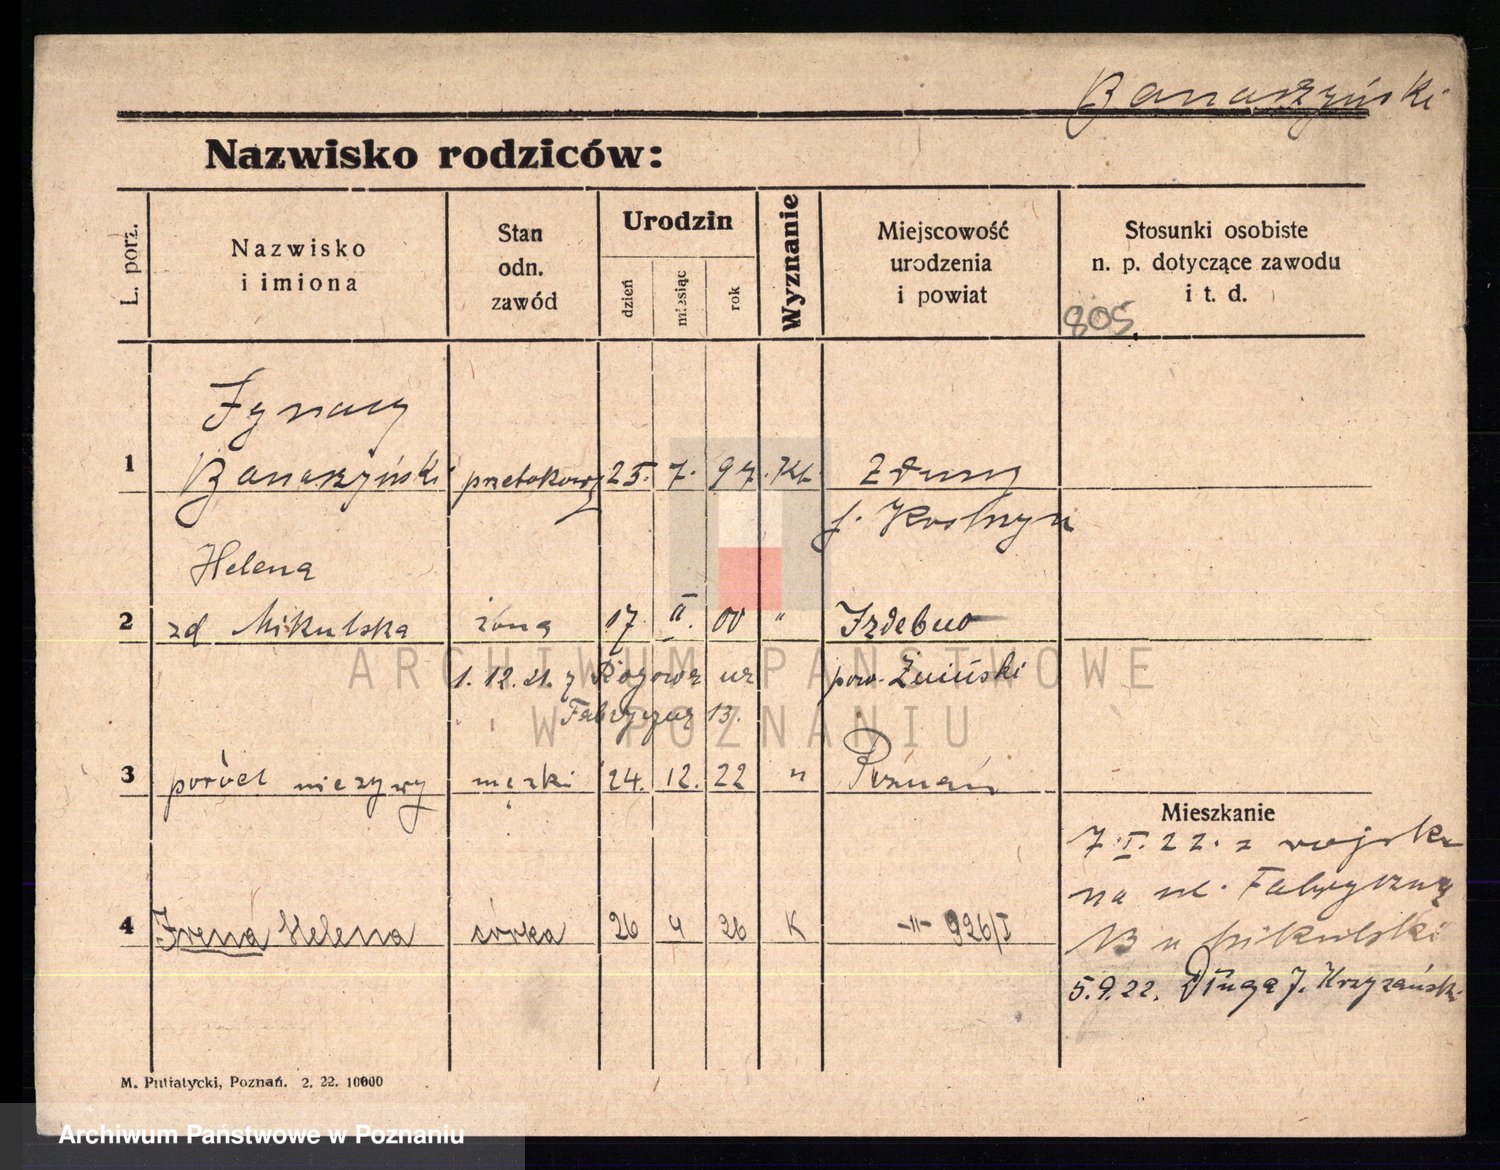 Banaszyński
Nazwisko rodziców:
L. porz.
Nazwisko
i imiona
Stan
odn.
zawód
Urodzin
dzień
miesiąc
rok
Wyznanie
Miejscowość
urodzenia
i powiat
Stosunki osobiste
n. p. dotyczące zawodu
i t. d.
805
Ignacy
1 Banaszyński przetokowy 25. 7. 97. Kt. Zduny
p. Kostrzyn
Helena
2 zd Mikulska żona 17. II. 00 " Izdebno
1. 12. 21. z Rogowa pow. Żniński
Fabryczna 13.
3 poród nieżywy męzki 24. 12. 22 " Poznań
Mieszkanie
7. I. 22. z wojska
na ul. Fabryczną
4 Irena Helena córka 26 4 26 K -"- 926/I
13 u Mikulski
5.9.22. Długa 7. Krzyżański
M. Putiatycki, Poznań. 2. 22. 10000
ARCHIWUM PAŃSTWOWE
W POZNANIU
Archiwum Państwowe w Poznaniu